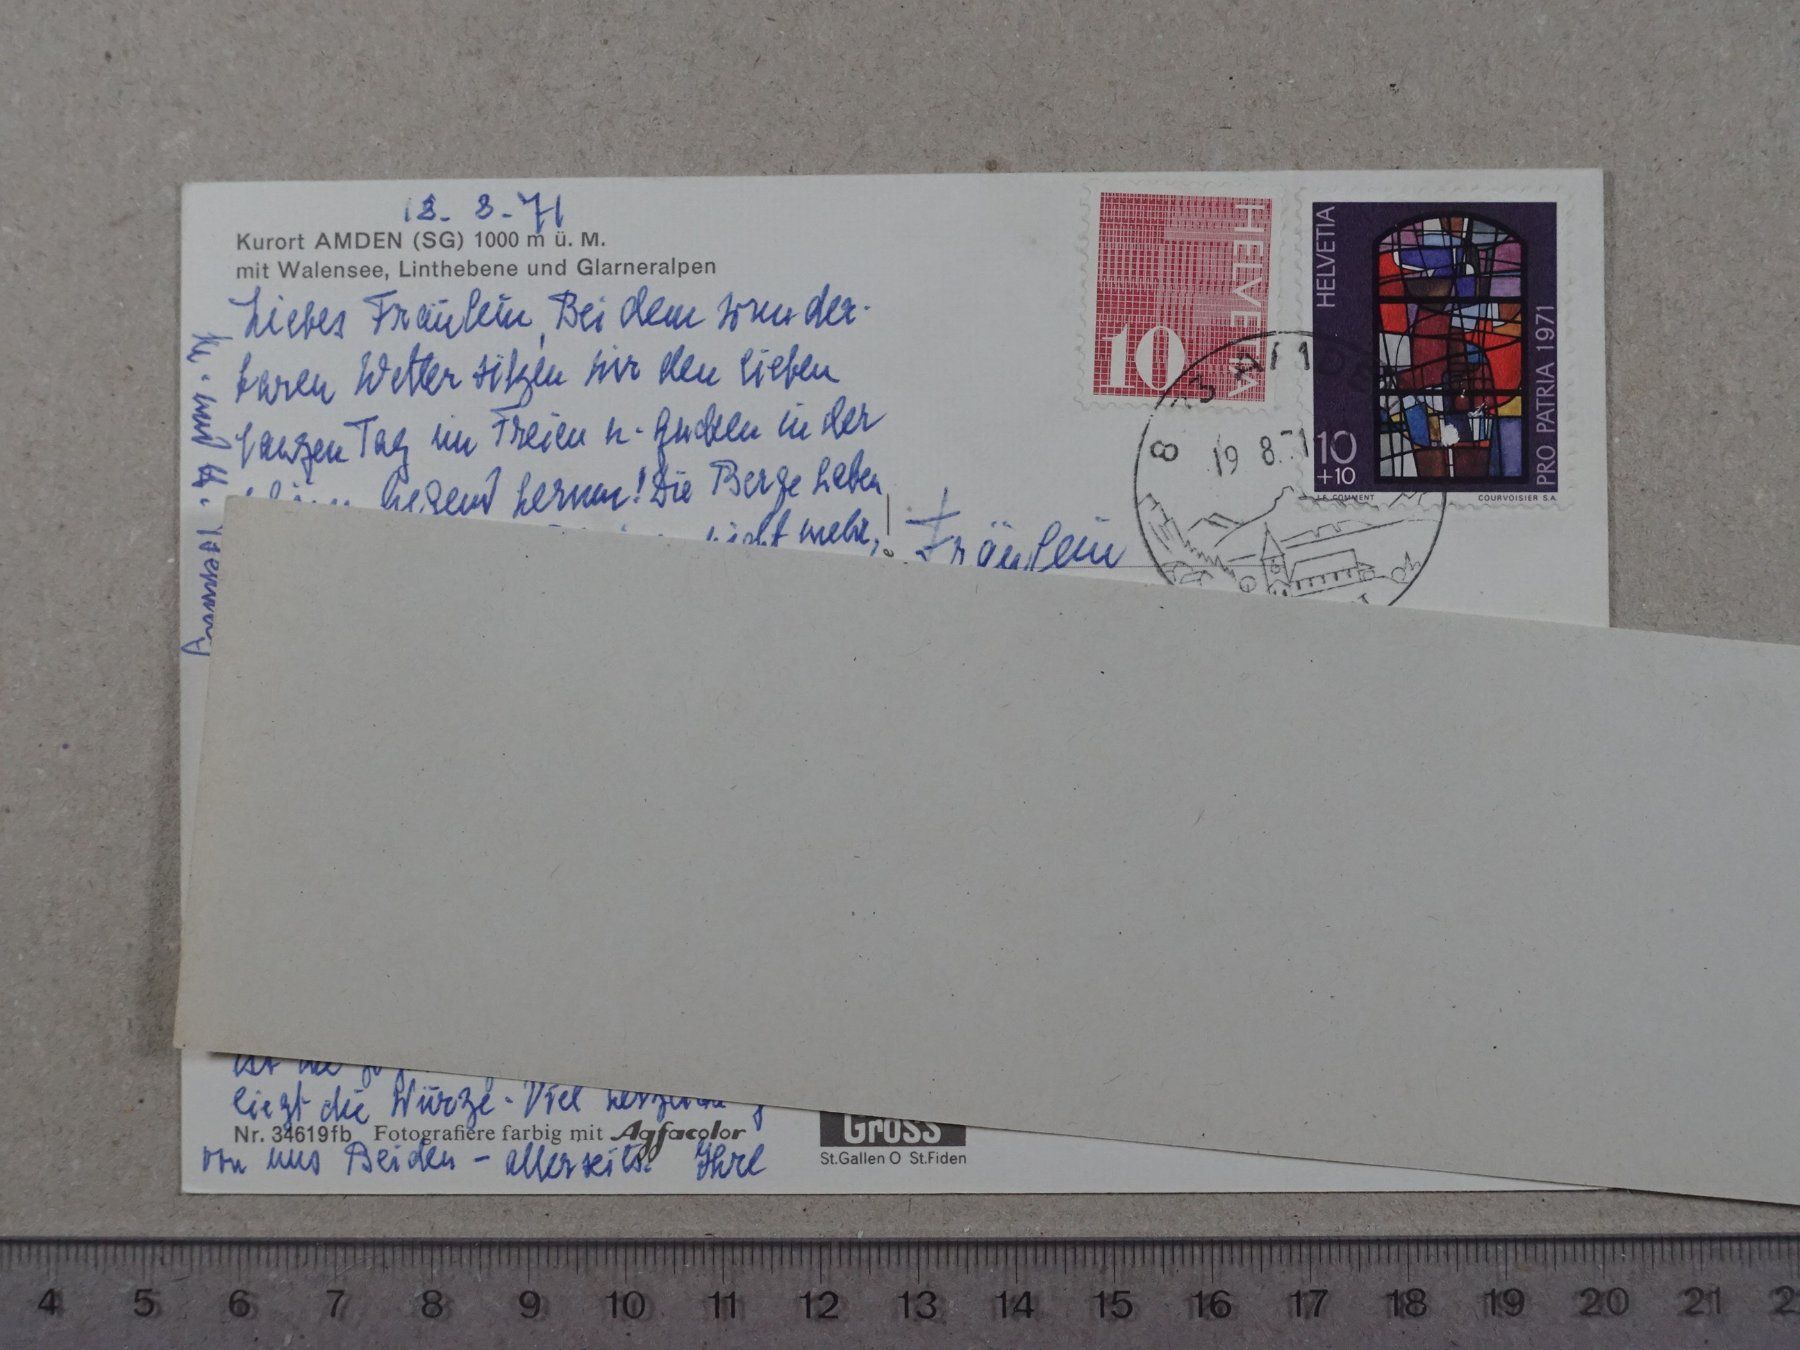 18. 8. 71
Kurort AMDEN (SG) 1000 m ü. M.
mit Walensee, Linthebene und Glarneralpen
Liebes Fräulein, Bei dem wunder-
baren Wetter sitzen wir den lieben
langen Tag im Freien u. gucken in der
Gegend herum! Die Berge haben
nicht mehr,
Fräulein
liegt die Würze. Viel
Nr. 34619fb Fotografiere farbig mit Agfacolor
von uns Beiden - allerseits. Ihre
HELVETIA
10
HELVETIA
10
+10
PRO PATRIA 1971
COURVOISIER S.A.
8873 AMDEN
19.8.71
Gross
St.Gallen O St.Fiden
4 5 6 7 8 9 10 11 12 13 14 15 16 17 18 19 20 21